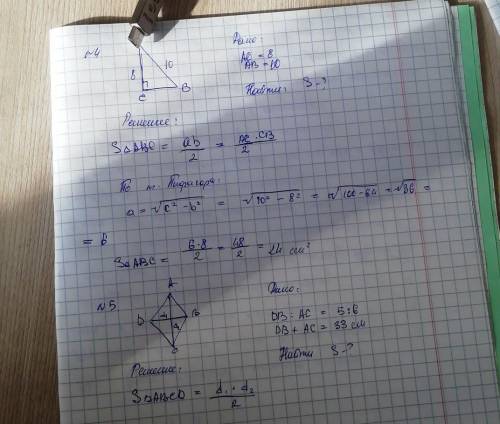 №4
8
10
C
B
Дано:
AC = 8
AB = 10
Найти: S-?
Решение:
S△ABC = ab/2 = AC·CB/2
По т. Пифагора:
a = √c² - b² = √10² - 8² = √100 - 64 = √36 =
= 6
S△ABC = 6·8/2 = 48/2 = 24 см²
№5
A
D
B
C
Дано:
DB : AC = 5:6
DB + AC = 33 см
Найти S-?
Решение:
SABCD = d₁ · d₂/2